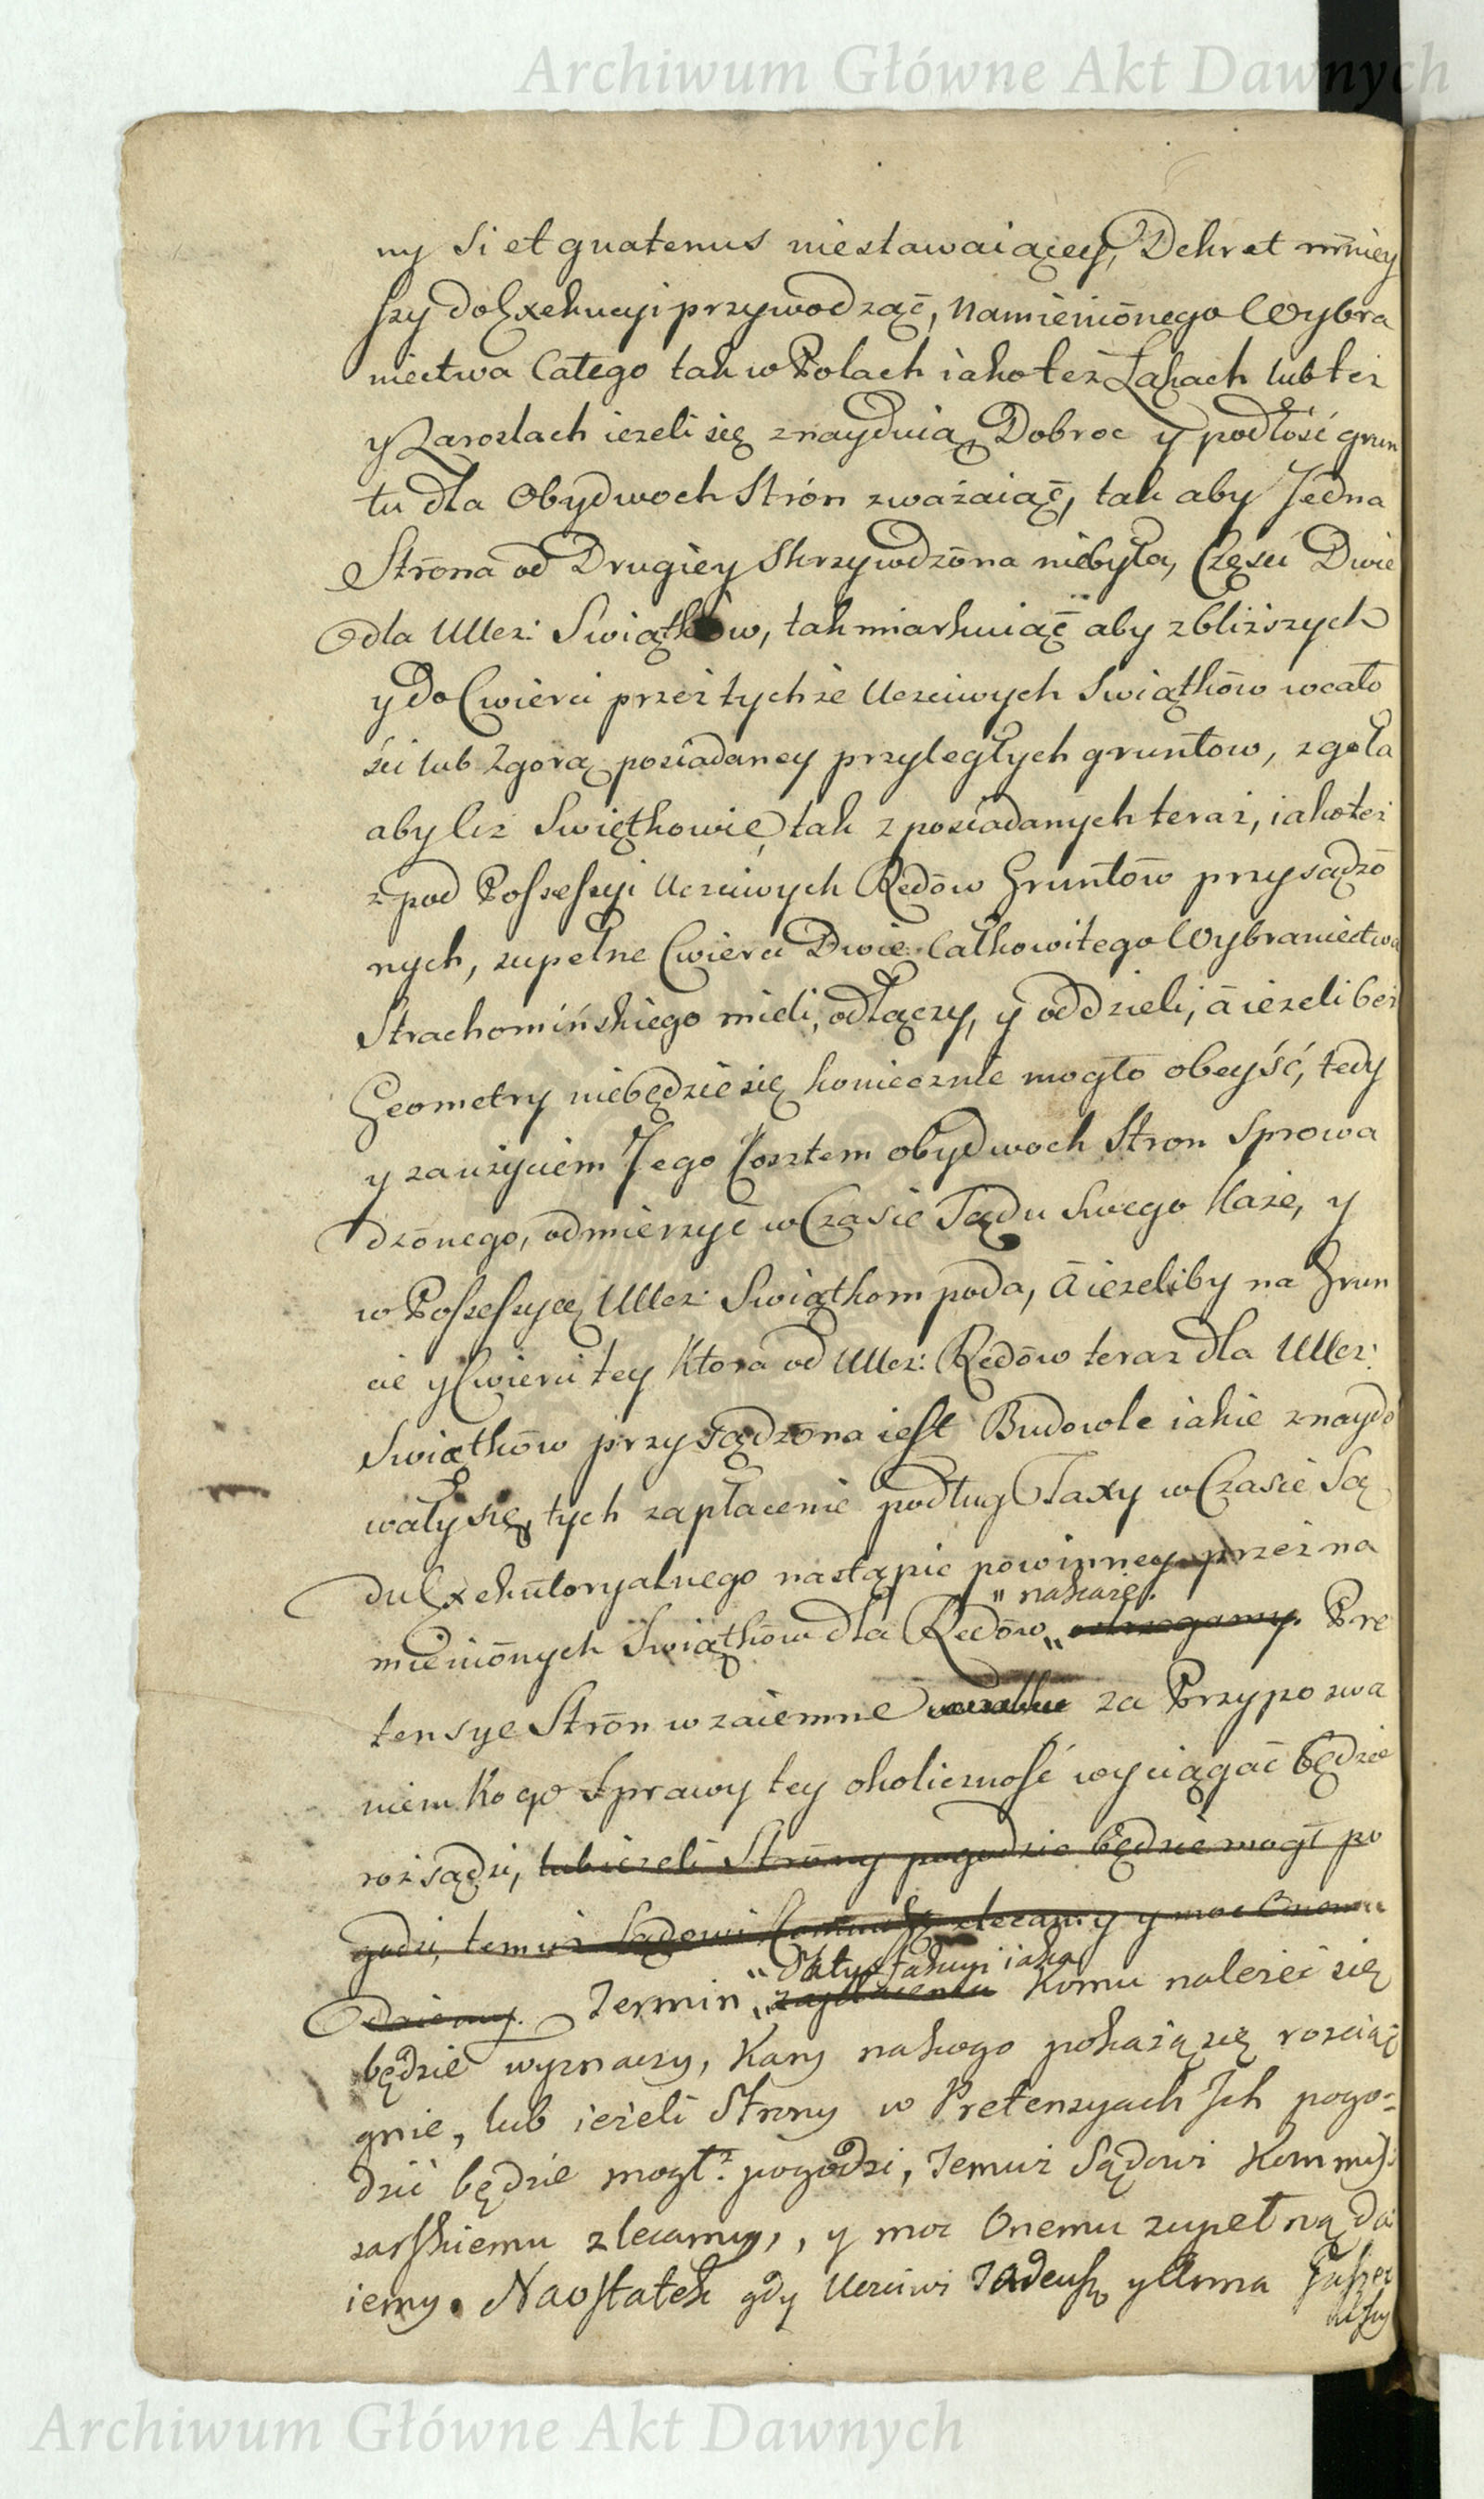 Archiwum Główne Akt Dawnych
ny si et quatenus niestawaiącey, Dekret niniey
szy do Exekucyi przywodząc, namienionego Wybra
niectwa Całego tak w Polach iakoteż Łąkach lub też
y Zaroslach ieżeli się znayduią Dobroc y podłość grun
tu dla Obydwoch Strón zważaiąc, tak aby Jedna
Strona od Drugiey Skrzywdzona niebyła, Części Dwie
dla Ucz: Swiątków, tak miarkuiąc aby zbliższych
y do Cwierci przez tychże Uczciwych Swiątków w cało
ści lub Zgorą posiadaney przyległych gruntow, zgoła
aby Ucz Swiętkowie, tak z posiadanych teraz, iakoteż
z pod Possessyi Uczciwych Redów Gruntów przysądzo
nych, zupełne Cwierci Dwie Całkowitego Wybraniectwa
Strachomińskiego mieli, odłączy, y oddzieli, a ieżeli bez
Geometry niebędzie się koniecznie mogło obeyść, tedy
y zaużyciem Jego Kosztem obydwoch Stron Sprowa
dzonego, odmierzyć w Czasie Sądu Swego Każe, y
w Possessyą Ucz: Swiątkom poda, a ieżeliby na Grun
cie y Cwierci tey Ktora od Ucz: Redów teraz dla Ucz:
Swiątków przysądzona iest Budowle iakie znaydo
wały się, tych zapłacenie podług Taxy w Czasie Są
du Exekutoryalnego nastąpic powinney przez na
" nakaże.
mienionych Swiątków dla Redów " Pre
tensye Strón wzaiemne za Przypozwa
niem Kogo Sprawy tey okoliczność wyciągać będzie
rozsądzi, lub ieżeli Strony pogodzic będzie mogł po
godzi, temuż Sądowi zlecamy y moc Onemu
" Satysfakcyi iaka
Daiemy. Termin " zapłacenia Komu należeć się
będzie wyznaczy, Kary nakogo pokażą się rosciąg
gnie, lub ieżeli Strony w Pretensyach Jch pogo-
dzić będzie mogł: pogodzi, Temuż Sądowi Kommis
sarskiemu zlecamy, y moc Onemu zupełną da
iemy. Naostatek gdy Uczciwi Tadeusz y Anna
Archiwum Główne Akt Dawnych